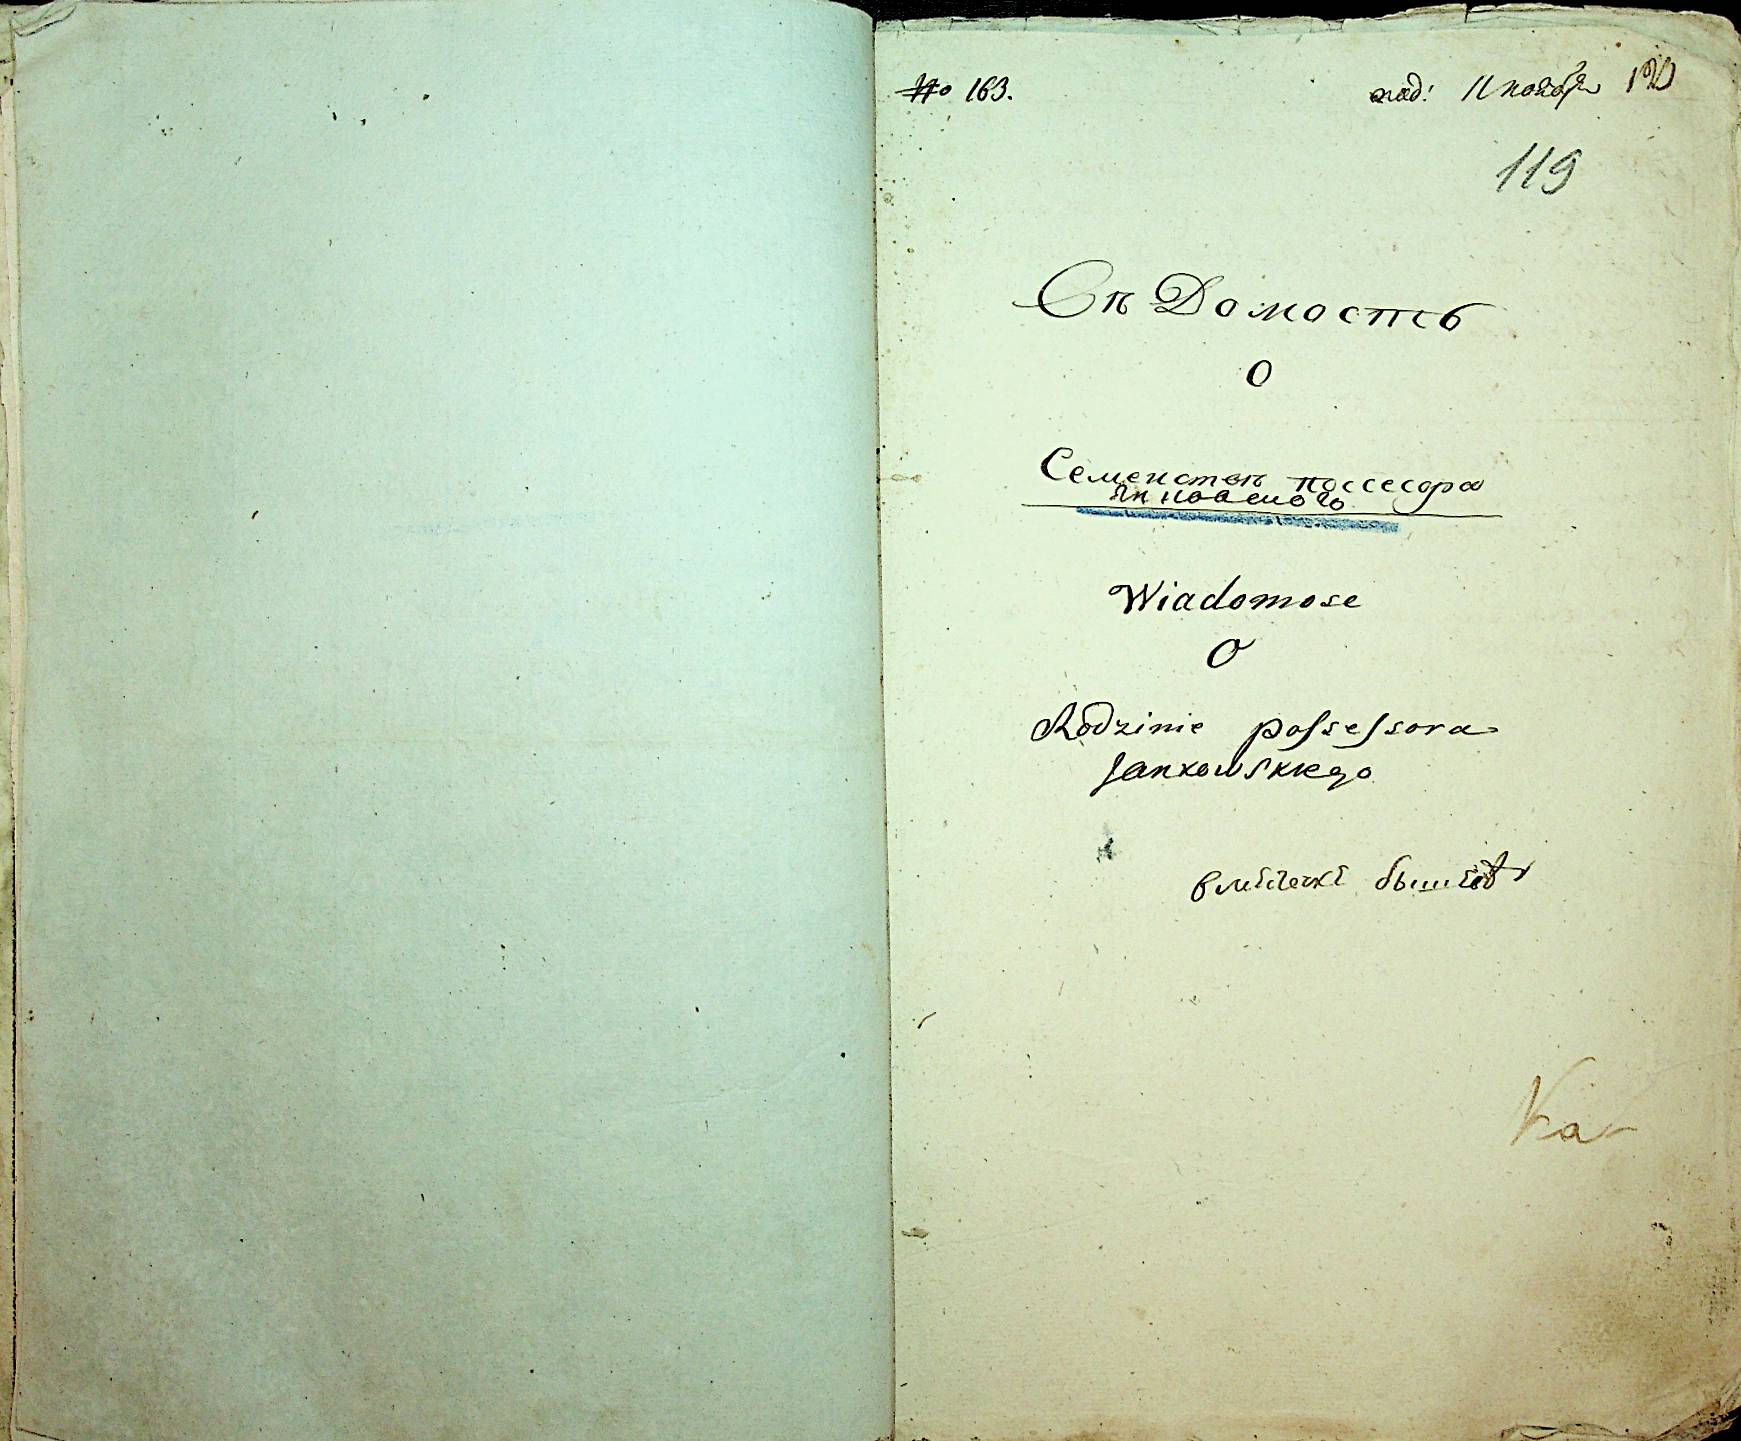 No 163.
под: 11 ноября 120
119
Вѣдомость
О
Семействѣ поссесора
Янковского
Wiadomosc
O
Rodzinie possessora
Jankowskiego
Ka